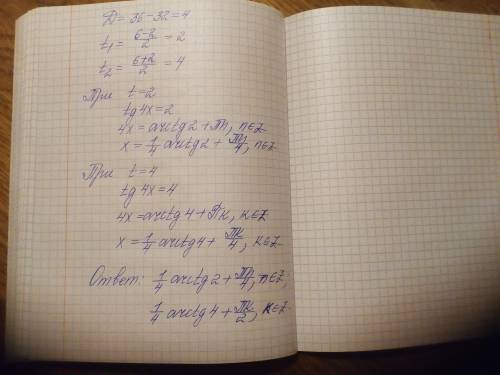 D = 36 - 32 = 4
t₁ = (6-2)/2 = 2
t₂ = (6+2)/2 = 4
При t = 2
tg 4x = 2
4x = arctg 2 + πn, n∈Z
x = 1/4 arctg 2 + πn/4, n∈Z
При t = 4
tg 4x = 4
4x = arctg 4 + πk, k∈Z
x = 1/4 arctg 4 + πk/4, k∈Z
Ответ: 1/4 arctg 2 + πn/4, n∈Z,
1/4 arctg 4 + πk/2, k∈Z.